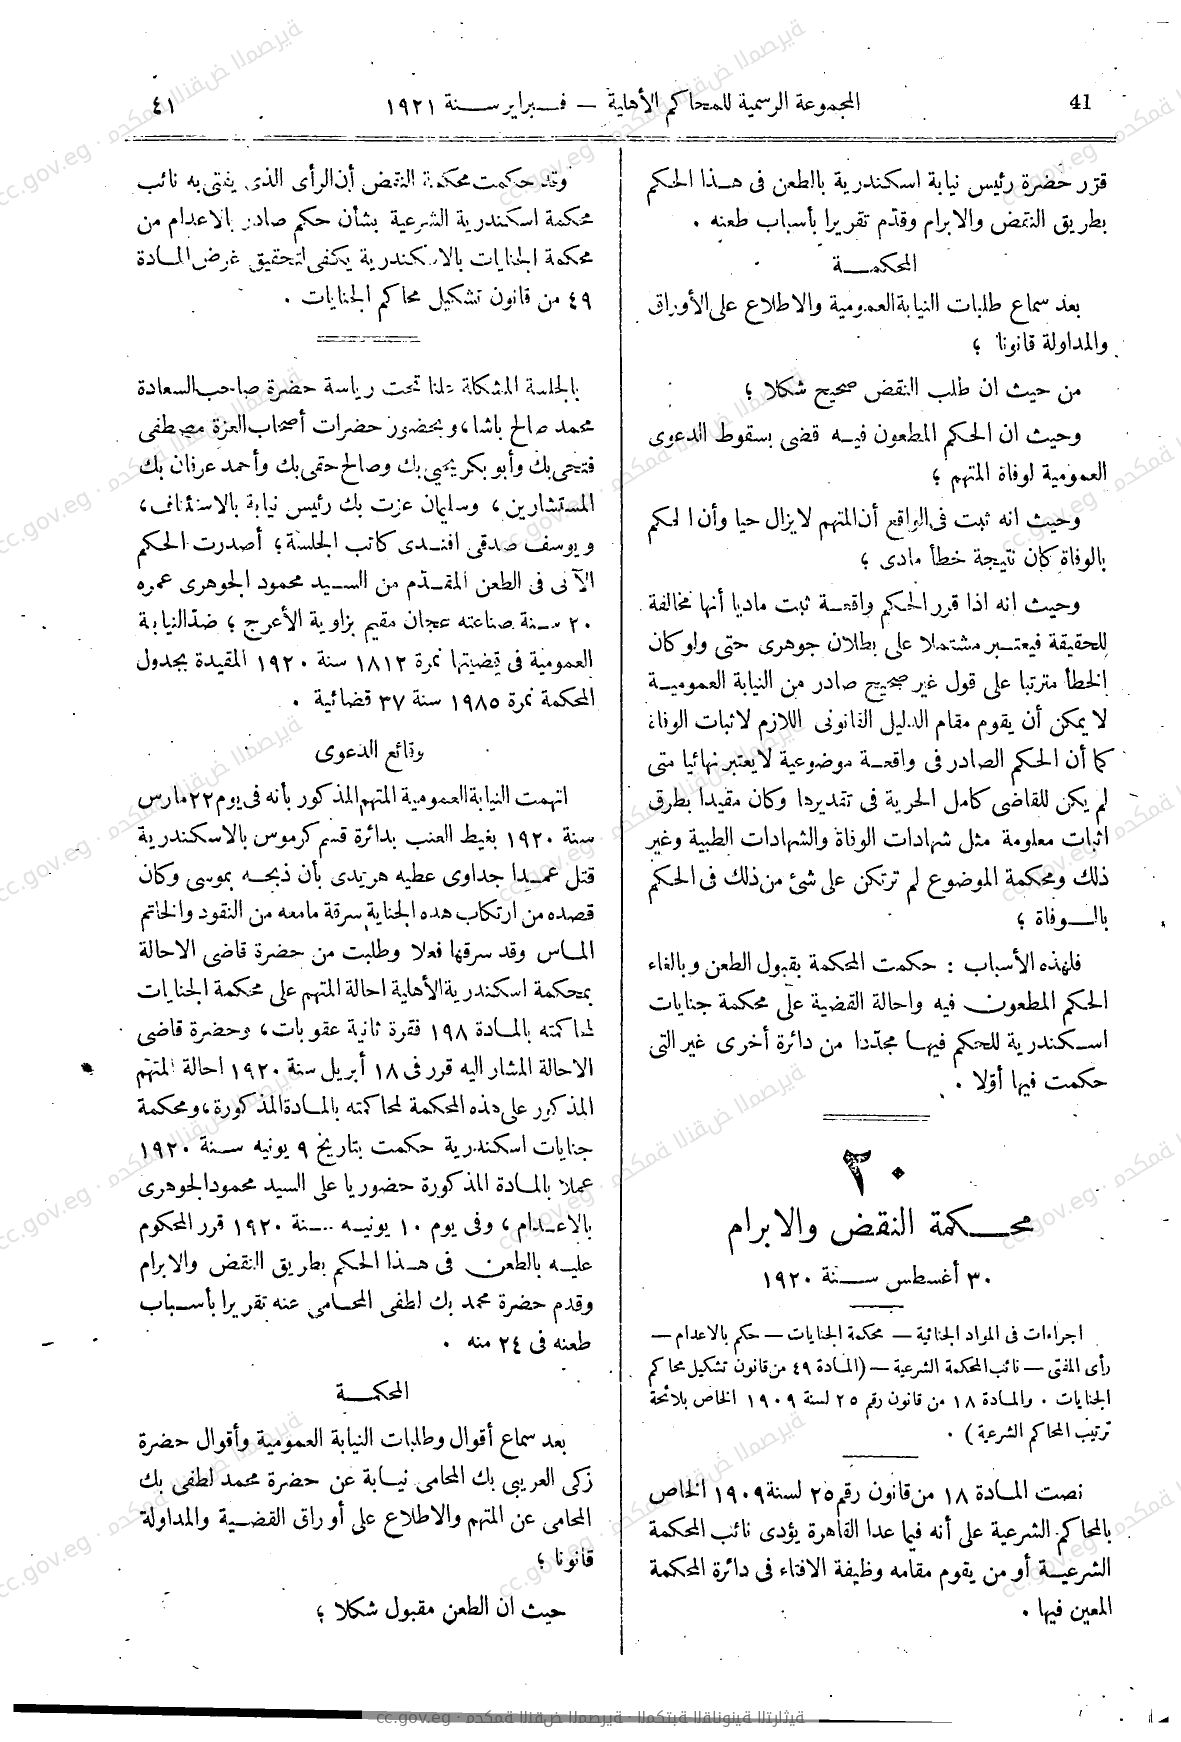 41
المجموعة الرسمية للمحاكم الأهلية – فبراير سنة ١٩٢١
٤١
قرّر حضرة رئيس نيابة اسكندرية بالطعن فى هذا الحكم
بطريق النقض والابرام وقدّم تقريرا بأسباب طعنه .
المحكمة
بعد سماع طلبات النيابة العمومية والاطلاع على الأوراق
والمداولة قانونا ؛
من حيث ان طلب النقض صحيح شكلا ؛
وحيث ان الحكم المطعون فيه قضى بسقوط الدعوى
العمومية لوفاة المتهم ؛
وحيث انه ثبت فى الواقع أن المتهم لا يزال حيا وأن الحكم
بالوفاة كان نتيجة خطأ مادى ؛
وحيث انه اذا قرر الحكم واقعة ثبت ماديا أنها مخالفة
للحقيقة فيعتبر مشتملا على بطلان جوهرى حتى ولو كان
الخطأ مترتبا على قول غير صحيح صادر من النيابة العمومية
لا يمكن أن يقوم مقام الدليل القانونى اللازم لاثبات الوفاة
كما أن الحكم الصادر فى واقعة موضوعية لا يعتبر نهائيا متى
لم يكن للقاضى كامل الحرية فى تقديرها وكان مقيدا بطرق
اثبات معلومة مثل شهادات الوفاة والشهادات الطبية وغير
ذلك ومحكمة الموضوع لم ترتكن على شئ من ذلك فى الحكم
بالوفاة ؛
فلهذه الأسباب : حكمت المحكمة بقبول الطعن وبالغاء
الحكم المطعون فيه واحالة القضية على محكمة جنايات
اسكندرية للحكم فيها مجدّدا من دائرة أخرى غير التى
حكمت فيها أوّلا .
٢٠
محكمة النقض والابرام
٣٠ أغسطس سنة ١٩٢٠
اجراءات فى المواد الجنائية – محكمة الجنايات – حكم بالاعدام –
رأى المفتى – نائب المحكمة الشرعية – (المادة ٤٩ من قانون تشكيل محاكم
الجنايات . والمادة ١٨ من قانون رقم ٢٥ لسنة ١٩٠٩ الخاص بلائحة
ترتيب المحاكم الشرعية) .
نصت المادة ١٨ من قانون رقم ٢٥ لسنة ١٩٠٩ الخاص
بالمحاكم الشرعية على أنه فيما عدا القاهرة يؤدى نائب المحكمة
الشرعية أو من يقوم مقامه وظيفة الافتاء فى دائرة المحكمة
المعين فيها .
وقد حكمت محكمة النقض أن الرأى الذى يفتى به نائب
محكمة اسكندرية الشرعية بشأن حكم صادر بالاعدام من
محكمة الجنايات بالاسكندرية يكفى لتحقيق غرض المادة
٤٩ من قانون تشكيل محاكم الجنايات .
بالجلسة المشكلة علنا تحت رياسة حضرة صاحب السعادة
محمد صالح باشا، وبحضور حضرات أصحاب العزة مصطفى
فتحى بك وأبو بكر يحيى بك وصالح حقى بك وأحمد عرفان بك
المستشارين، وسليمان عزت بك رئيس نيابة بالاستئناف،
ويوسف صدقى افندى كاتب الجلسة؛ أصدرت الحكم
الآتى فى الطعن المقدّم من السيد محمود الجوهرى عمره
٢٠ سنة صناعته عجان مقيم بزاوية الأعرج ؛ ضدّ النيابة
العمومية فى قضيتها نمرة ١٨١٢ سنة ١٩٢٠ المقيدة بجدول
المحكمة نمرة ١٩٨٥ سنة ٣٧ قضائية .
وقائع الدعوى
اتهمت النيابة العمومية المتهم المذكور بأنه فى يوم ٢٢ مارس
سنة ١٩٢٠ بغيط العنب بدائرة قسم كرموس بالاسكندرية
قتل عمدا جداوى عطيه هريدى بأن ذبحه بموسى وكان
قصده من ارتكاب هذه الجناية سرقة مامعه من النقود والخاتم
الماس وقد سرقها فعلا وطلبت من حضرة قاضى الاحالة
بمحكمة اسكندرية الأهلية احالة المتهم على محكمة الجنايات
لمحاكمته بالمادة ١٩٨ فقرة ثانية عقوبات، وحضرة قاضى
الاحالة المشار اليه قرر فى ١٨ أبريل سنة ١٩٢٠ احالة المتهم
المذكور على هذه المحكمة لمحاكمته بالمادة المذكورة، ومحكمة
جنايات اسكندرية حكمت بتاريخ ٩ يونيه سنة ١٩٢٠
عملا بالمادة المذكورة حضوريا على السيد محمود الجوهرى
بالاعدام، وفى يوم ١٠ يونيه سنة ١٩٢٠ قرر المحكوم
عليه بالطعن فى هذا الحكم بطريق النقض والابرام
وقدم حضرة محمد بك لطفى المحامى عنه تقريرا بأسباب
طعنه فى ٢٤ منه .
المحكمة
بعد سماع أقوال وطلبات النيابة العمومية وأقوال حضرة
زكى العريبى بك المحامى نيابة عن حضرة محمد لطفى بك
المحامى عن المتهم والاطلاع على أوراق القضية والمداولة
قانونا ؛
حيث ان الطعن مقبول شكلا ؛
cc.gov.eg · محكمة النقض المصرية · المكتبة القانونية التراثية